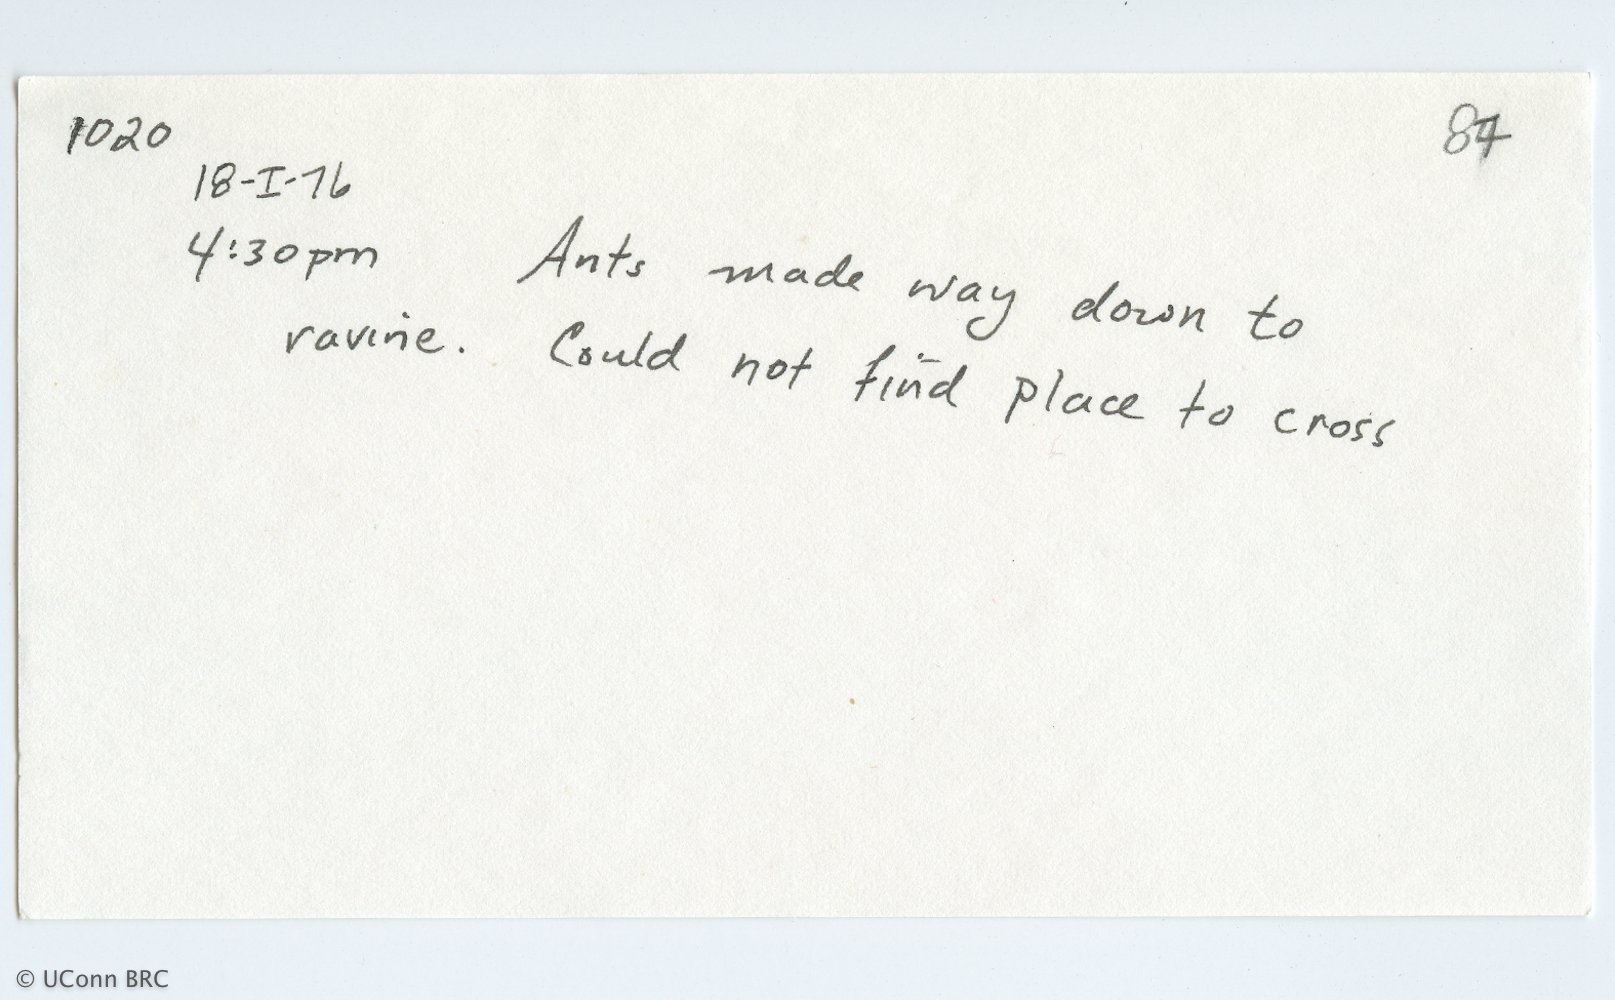 1020
84
18-I-76
4:30pm Ants made way down to
ravine. Could not find place to cross
© UConn BRC